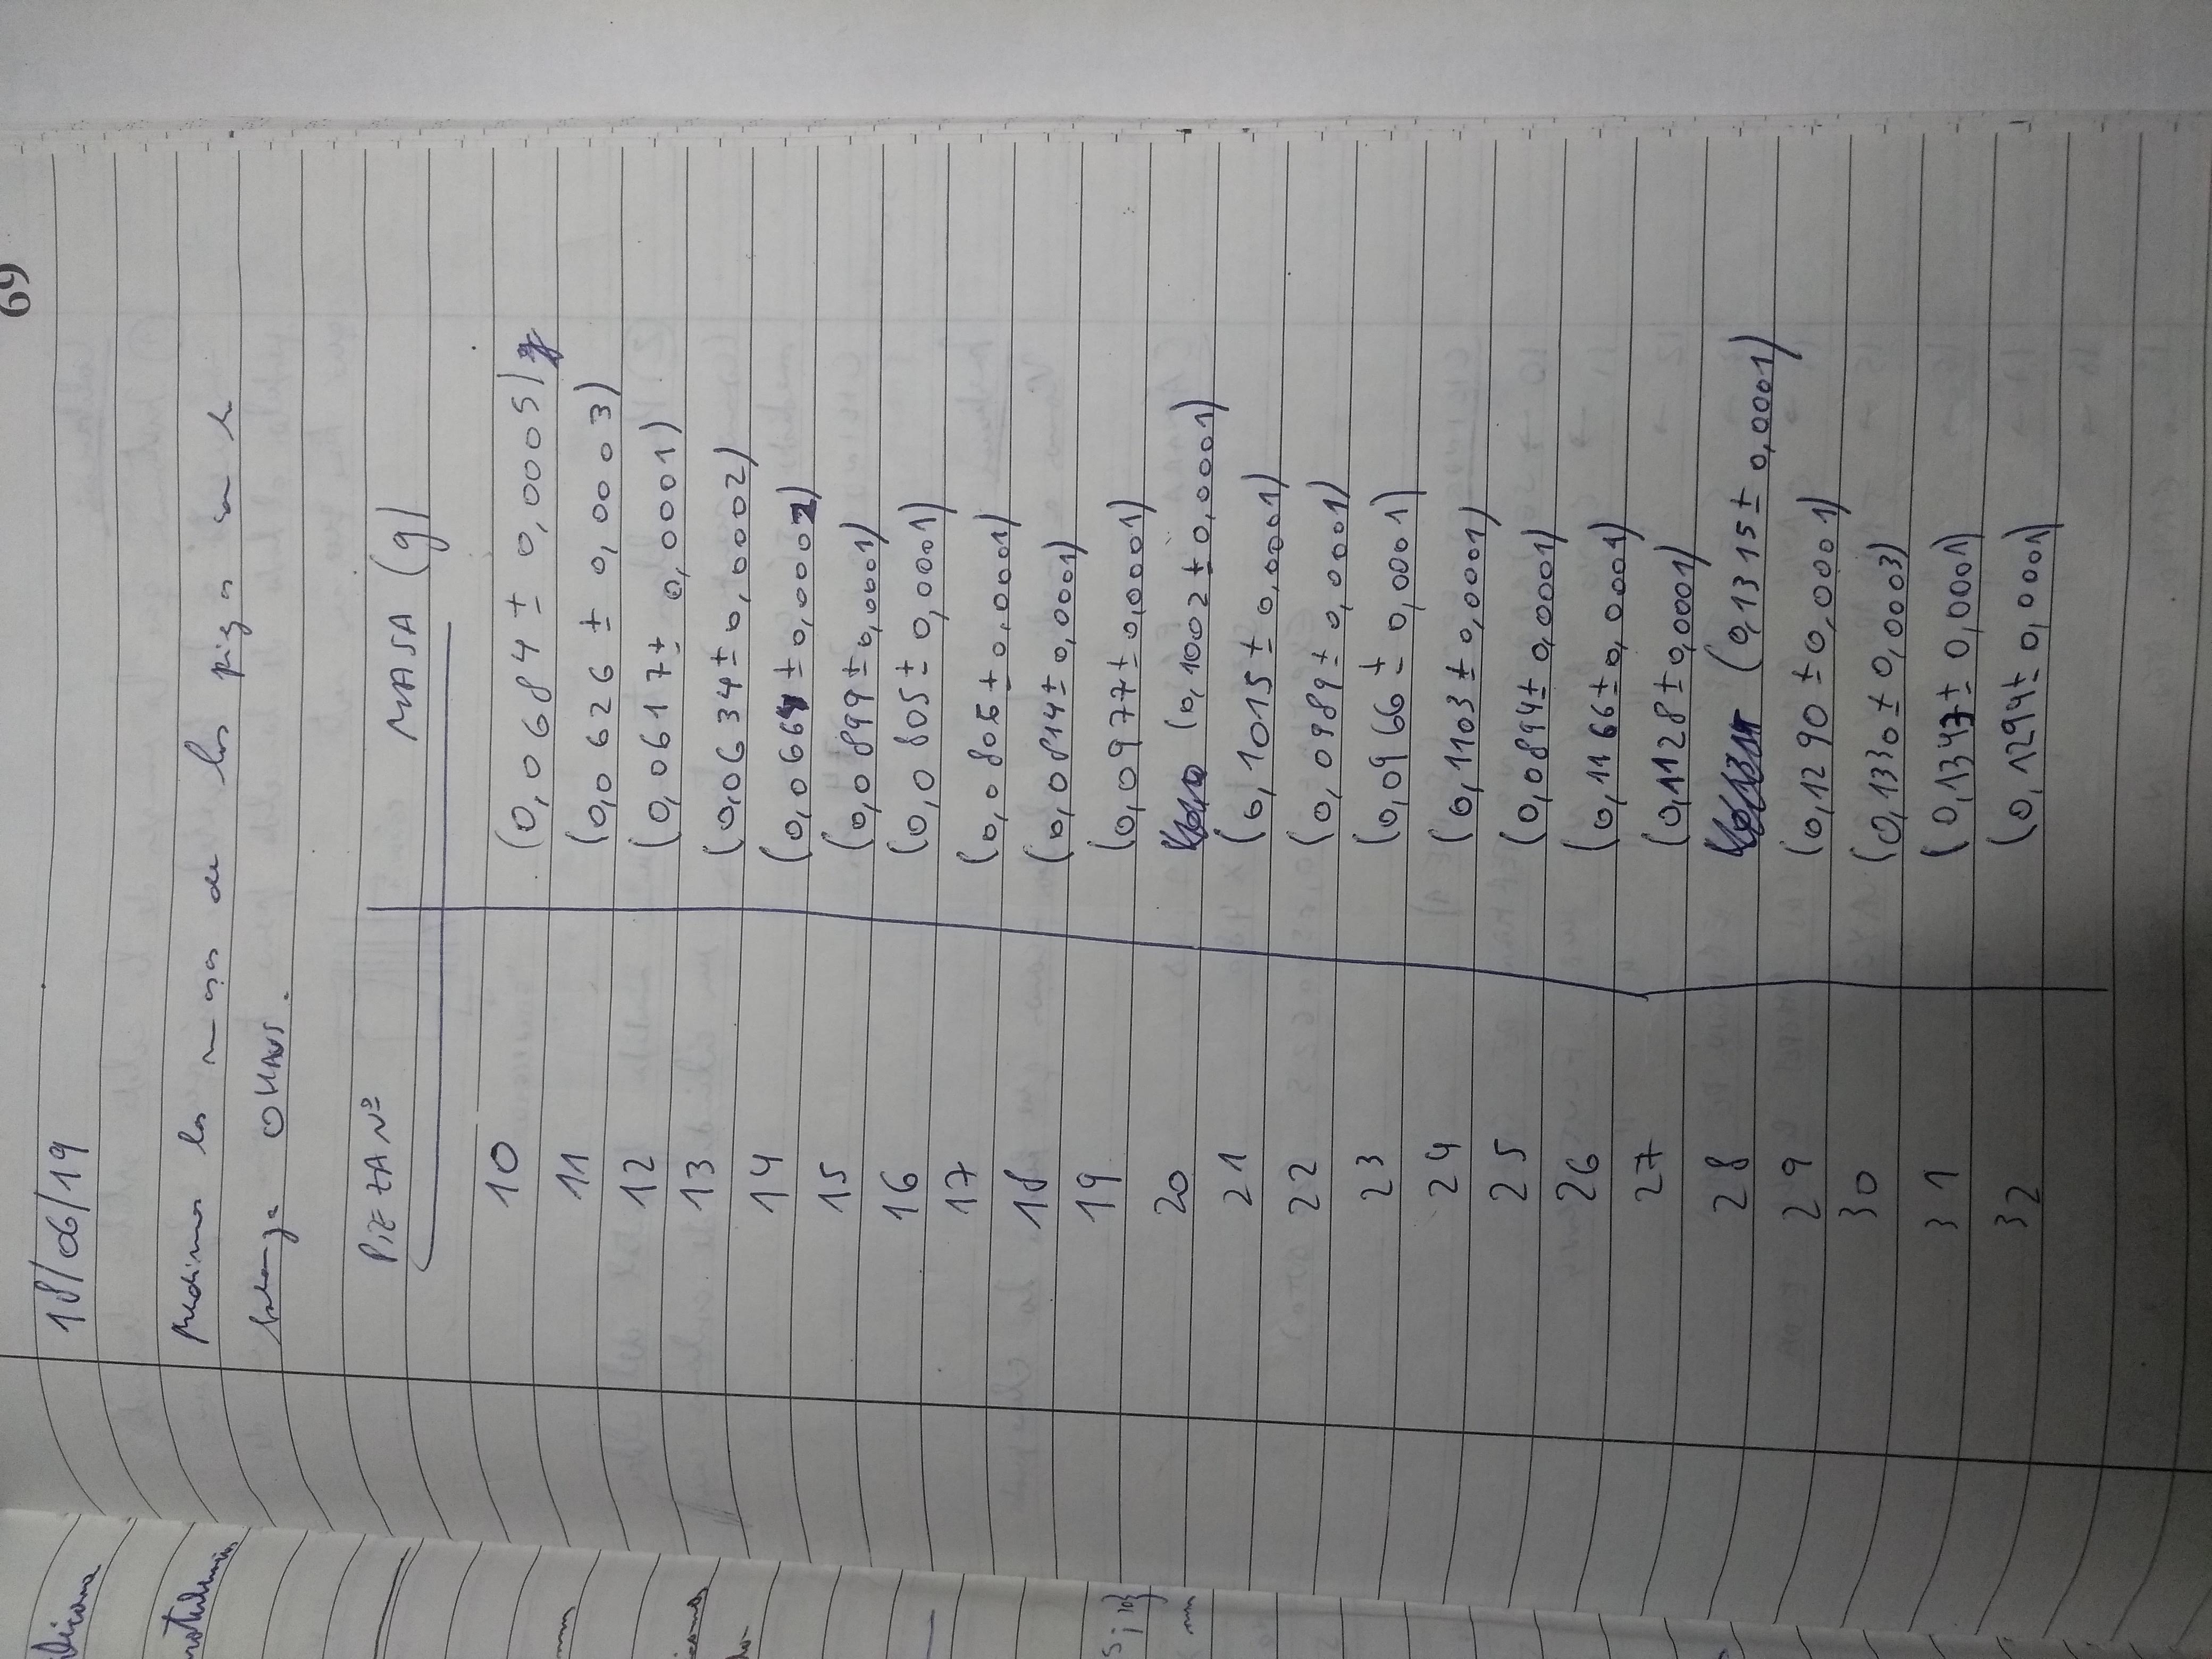 69
18/06/19
Medimos las masas de las piezas con la
balanza OHAUS.
PIEZA Nº MASA (g)
10 (0,0684 ± 0,0005) g
11 (0,0626 ± 0,0003)
12 (0,0617 ± 0,0001)
13 (0,0634 ± 0,0002)
14 (0,0664 ± 0,0002)
15 (0,0899 ± 0,0001)
16 (0,0805 ± 0,0001)
17 (0,0806 ± 0,0001)
18 (0,0814 ± 0,0001)
19 (0,0977 ± 0,0001)
20 (0,1002 ± 0,0001)
21 (0,1015 ± 0,0001)
22 (0,0989 ± 0,0001)
23 (0,0966 ± 0,0001)
24 (0,1103 ± 0,0001)
25 (0,0894 ± 0,0001)
26 (0,1166 ± 0,0001)
27 (0,1128 ± 0,0001)
28 (0,1315 ± 0,0001)
29 (0,1290 ± 0,0001)
30 (0,1330 ± 0,0003)
31 (0,1347 ± 0,0001)
32 (0,1294 ± 0,0001)